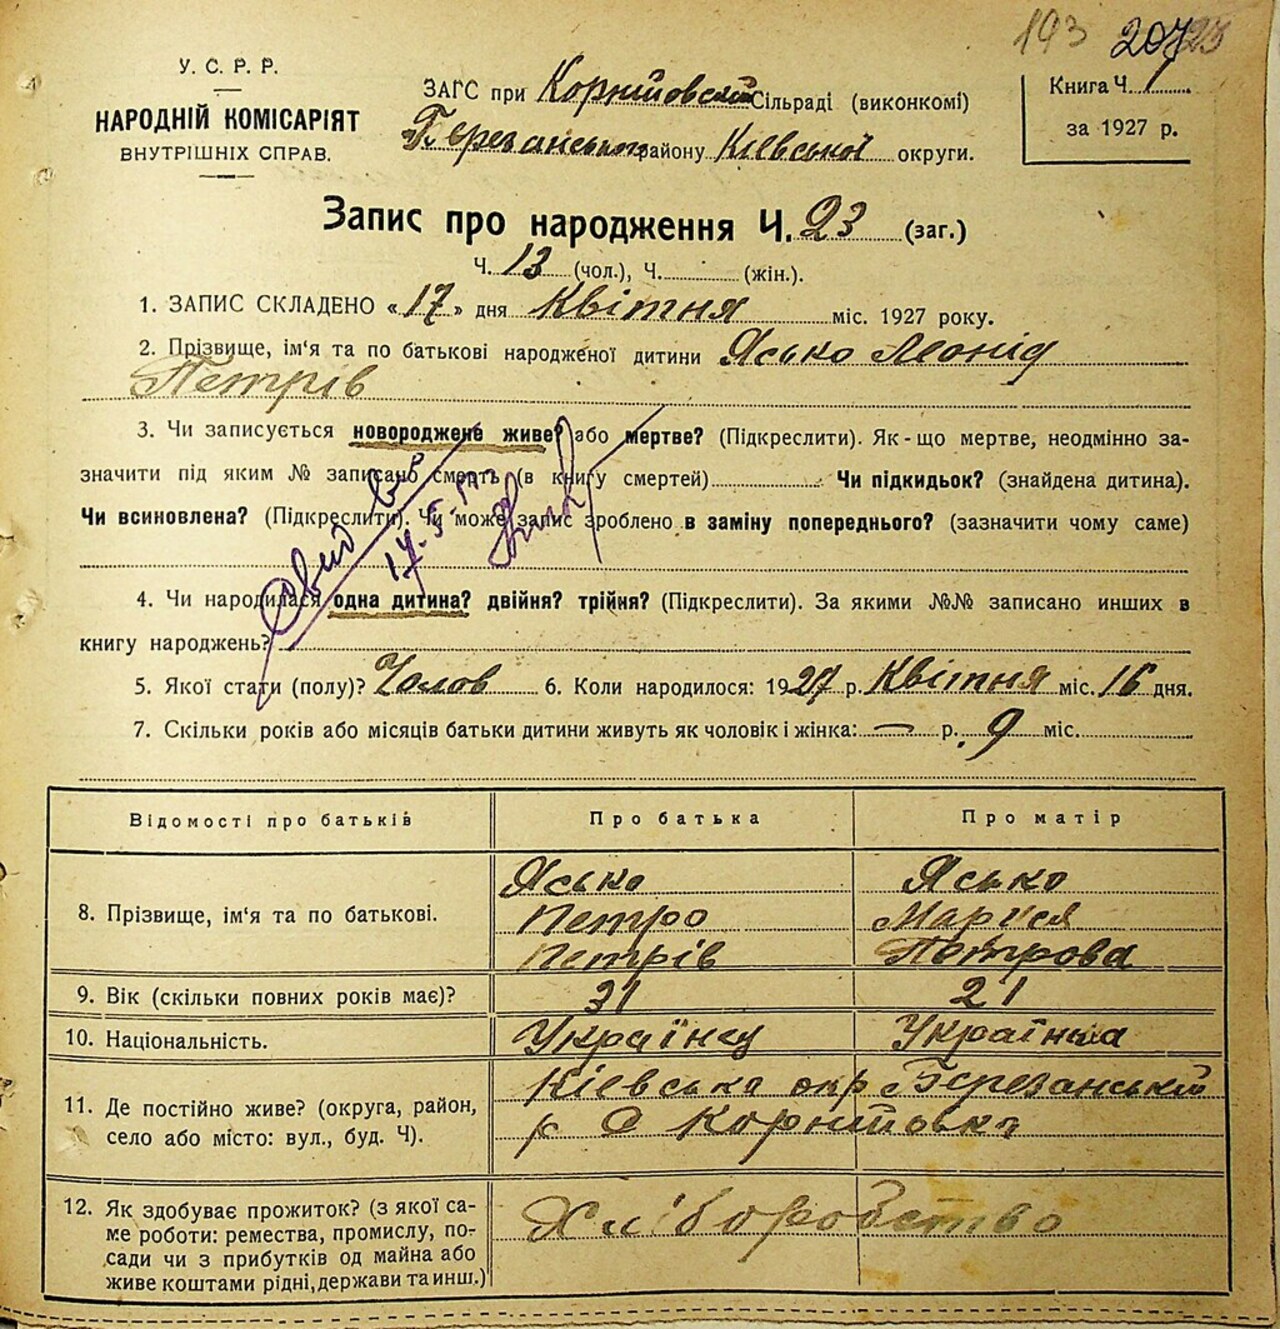 193 207
У. С. Р. Р.
НАРОДНІЙ КОМІСАРІЯТ
ВНУТРІШНІХ СПРАВ.
ЗАГС при Корнітовській Сільраді (виконкомі)
Березанського району Київської округи.
Книга Ч. 1
за 1927 р.
Запис про народження Ч. 23 (заг.)
Ч. 13 (чол.), Ч. (жін.).
1. ЗАПИС СКЛАДЕНО « 17 » дня Квітня міс. 1927 року.
2. Прізвище, ім'я та по батькові народженої дитини Ясько Леонід
Петрів
3. Чи записується новороджене живе? або мертве? (Підкреслити). Як-що мертве, неодмінно за-
значити під яким № записано смерть (в книгу смертей) Чи підкидьок? (знайдена дитина).
Чи всиновлена? (Підкреслити). Чи може запис зроблено в заміну попереднього? (зазначити чому саме)
4. Чи народилася одна дитина? двійня? трійня? (Підкреслити). За якими №№ записано инших в
книгу народжень?
5. Якої стати (полу)? Чолов 6. Коли народилося: 1927 р. Квітня міс. 16 дня.
7. Скільки років або місяців батьки дитини живуть як чоловік і жінка: — р. 9 міс.
Відомості про батьків Про батька Про матір
8. Прізвище, ім'я та по батькові.
Ясько Ясько
Петро Маруся
Петрів Петрова
9. Вік (скільки повних років має)? 31 21
10. Національність. Українец Українька
11. Де постійно живе? (округа, район,
село або місто: вул., буд. Ч).
Київська окр Березанський
р С
12. Як здобуває прожиток? (з якої са-
ме роботи: ремества, промислу, по-
сади чи з прибутків од майна або
живе коштами рідні, держави та инш.)
Хліборобство